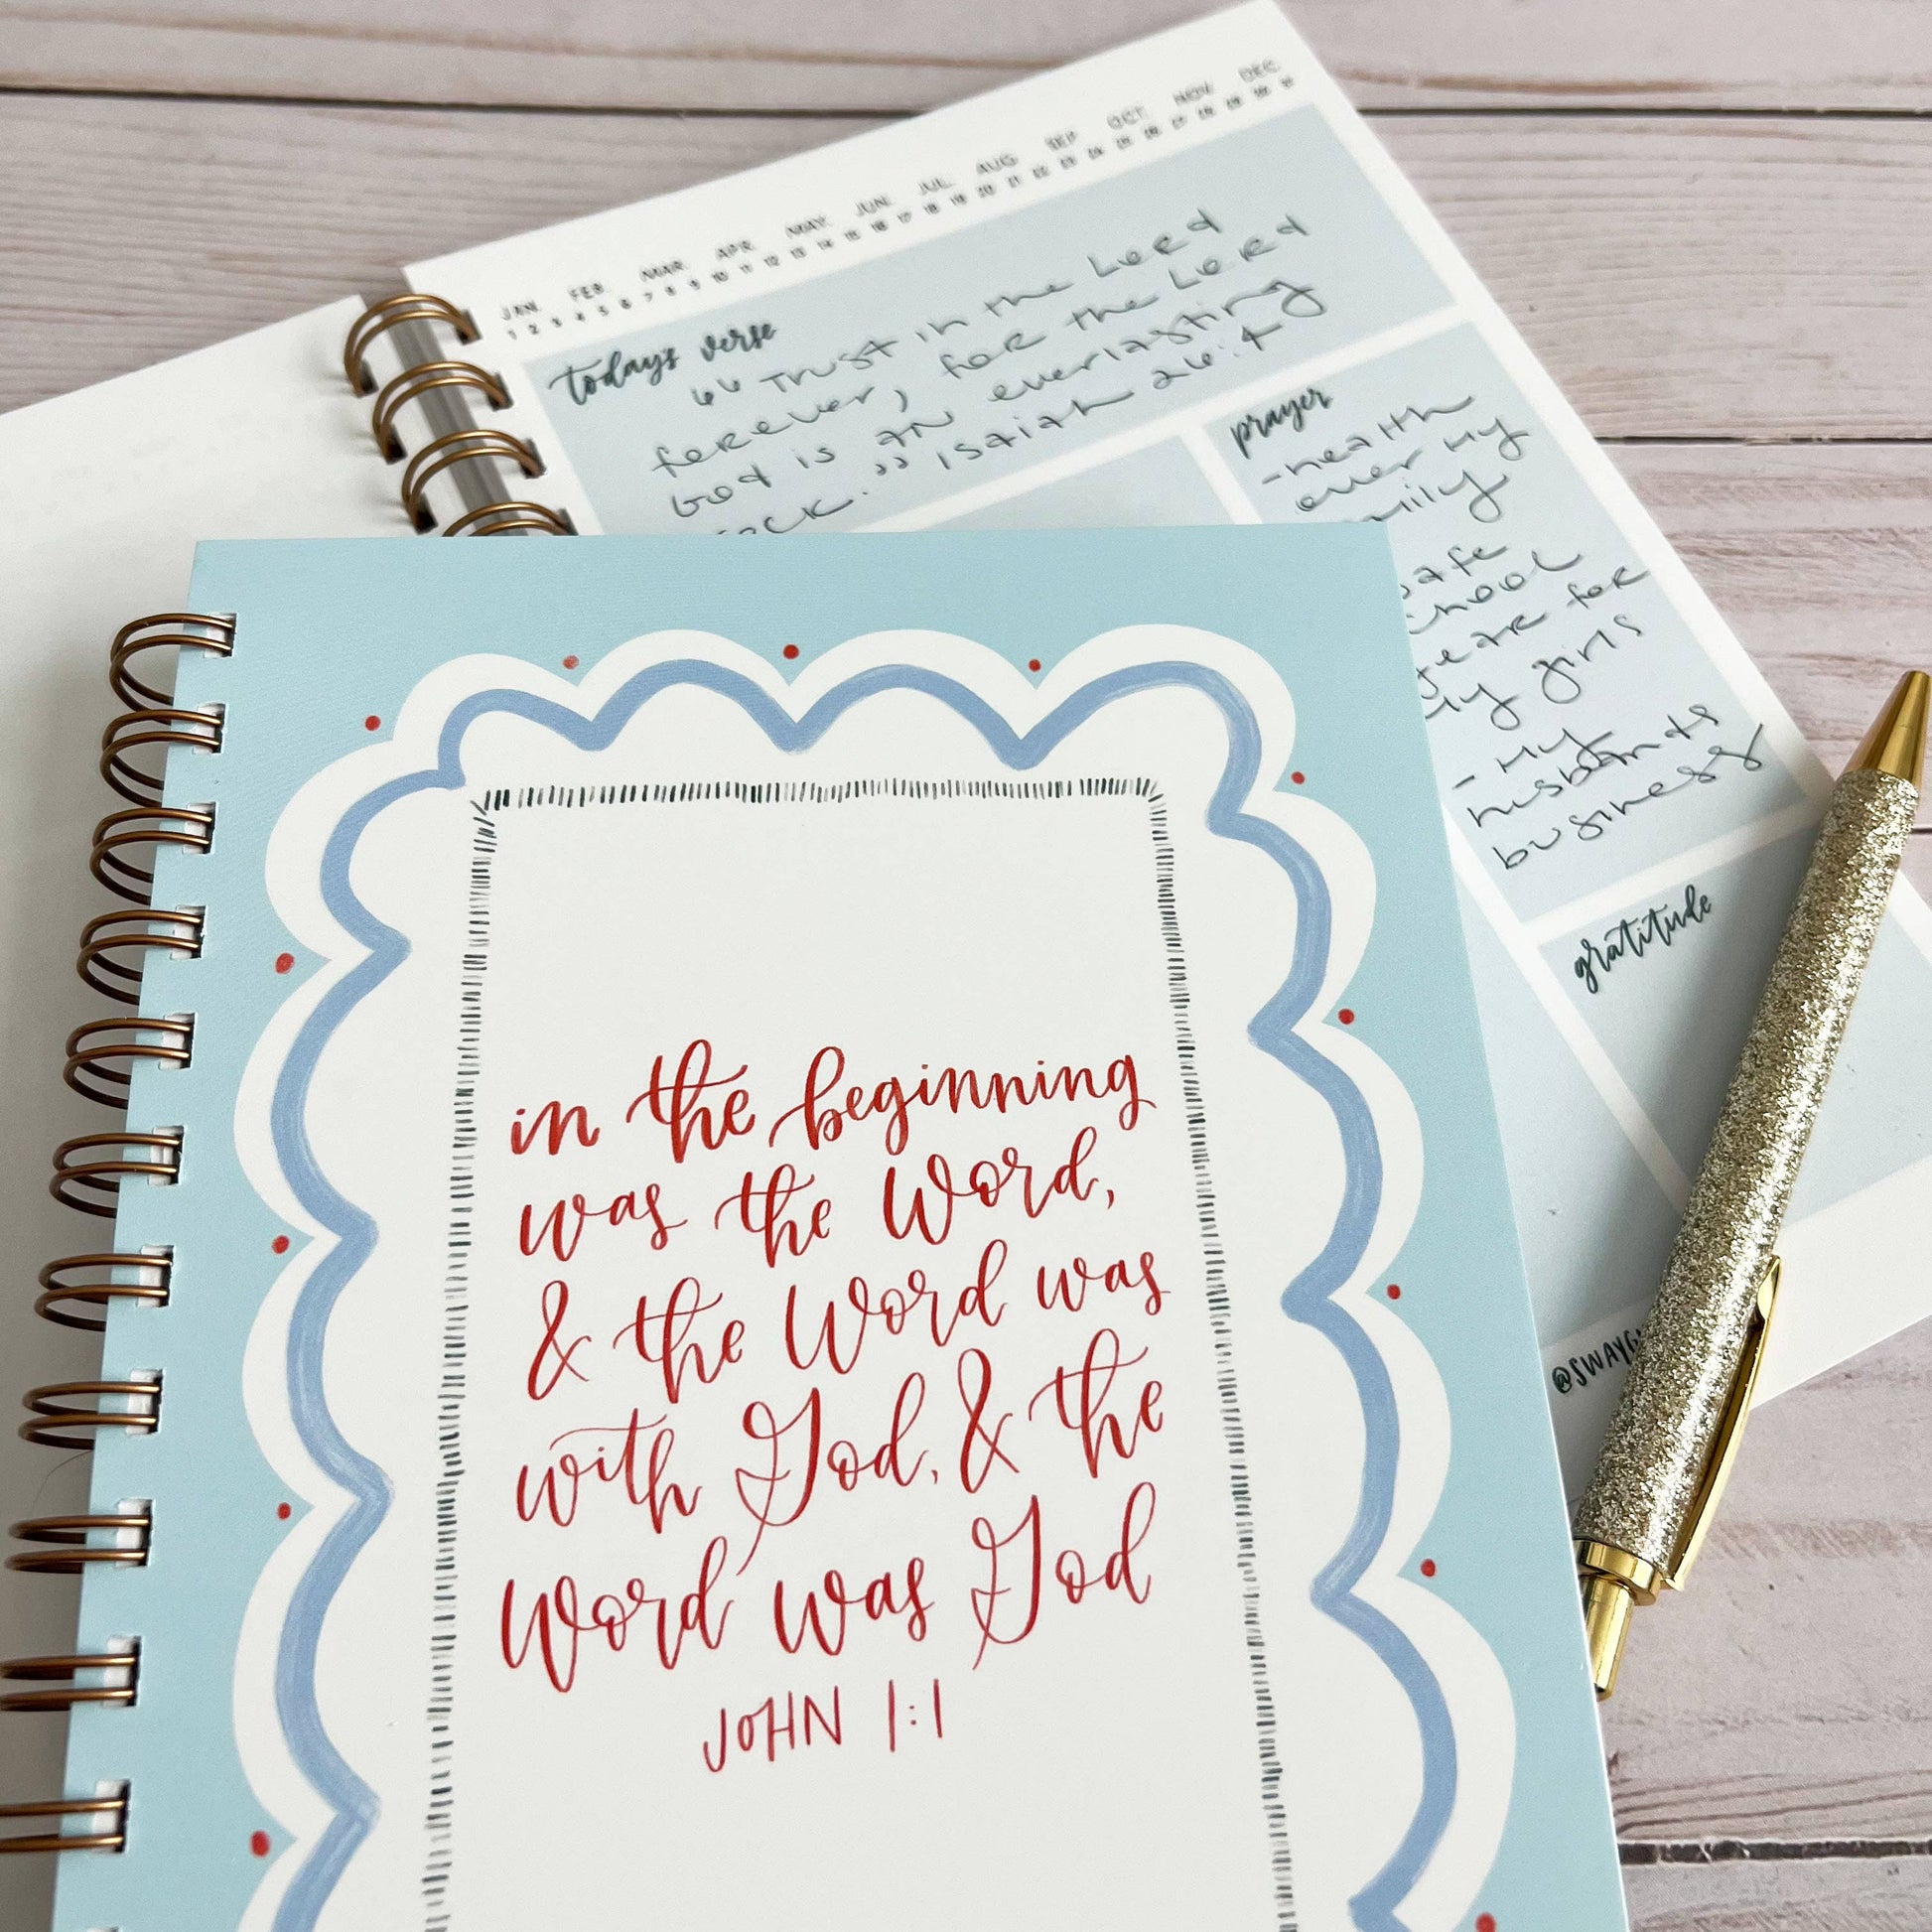 JAN. FEB. MAR. APR. MAY. JUN. JUL. AUG. SEP. OCT. NOV. DEC.
1 2 3 4 5 6 7 8 9 10 11 12 13 14 15 16 17 18 19 20 21 22 23 24 25 26 27 28 29 30 31
todays verse
"Trust in the Lord
forever, for the Lord
God is an everlasting
rock." Isaiah 26:4
prayer
- health
over my
family
safe
school
year for
my girls
- my
husbands
business
gratitude
@SWAYG
in the beginning
was the Word,
& the Word was
with God, & the
Word was God
JOHN 1:1